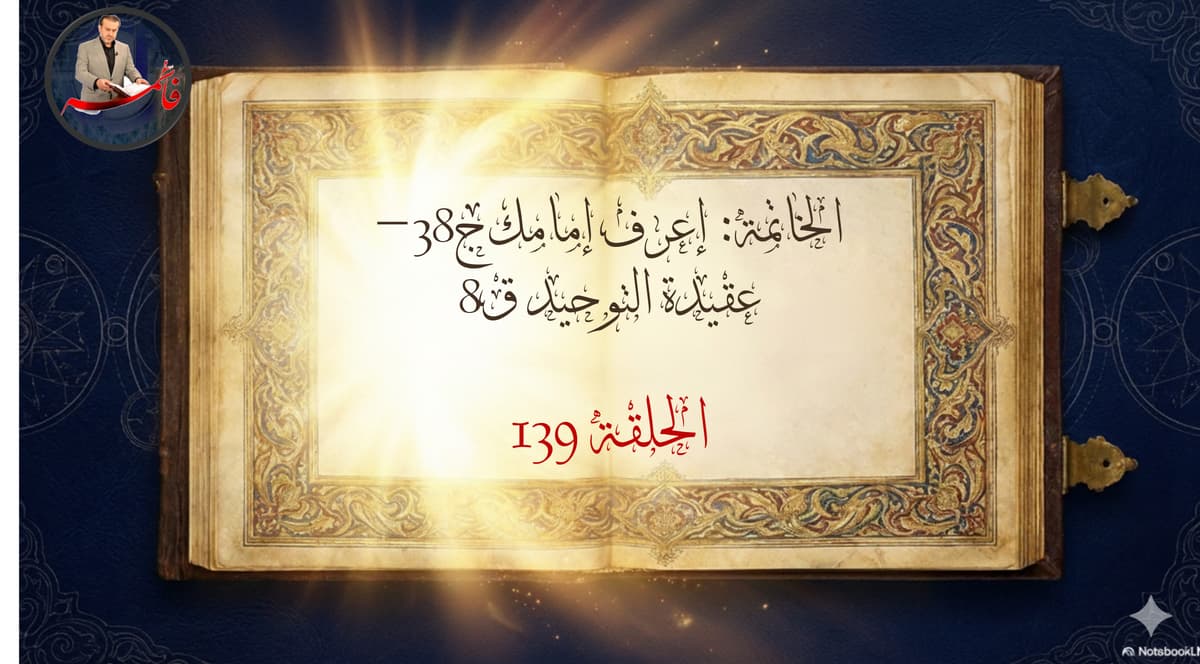 فاطمة
الخاتمة: إعرف إمامك ج38 –
عقيدة التوحيد ق8
الحلقة 139
NotsbookL